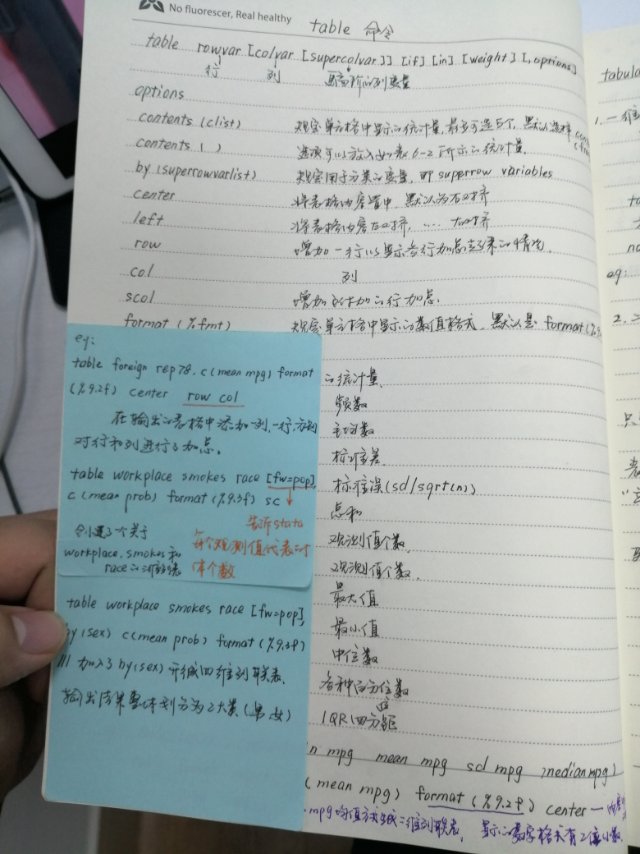 No fluorescer, Real healthy
table 命令
table rowvar [colvar [supercolvar]] [if] [in] [weight] [, options]
行 列
options
contents (clist) 规定单元格中显示的统计量,最多可选5个,默认选择
contents ( ) 选项可以放入如表6-2所示的统计量
by (superrowvarlist) 规定用于分类的变量,即 superrow variables
center 将表格内容置中,默认为右对齐
left 将表格内容左对齐,
row 增加一行以显示各行加总结果的情况
col 列
scol
format (%fmt) 规定单元格中显示的数值格式,默认是 format(%
eg:
table foreign rep78, c(mean mpg) format
(%9.2f) center row col
在输出的表格中添加一列,一行,分别
对行和列进行了加总。
table workplace smokes race [fw=pop],
c(mean prob) format (%9.3f) sc
告诉stata
每个观测值代表的
个数
创建了个关于
workplace, smokes和
race的
table workplace smokes race [fw=pop],
by(sex) c(mean prob) format (%9.3f)
加入了by(sex)形成四维列联表,
输出结果整体划分为2大类(男,女)
的统计量,
频数
平均数
标准差
标准误(sd/sqrt(n))
总和
观测值个数
观测值个数
最大值
最小值
中位数
各种百分位数
IQR 四分位距
n mpg mean mpg sd mpg median mpg)
(mean mpg) format (%9.2f) center
mpg均值 二维列联表, 显示的数字格式有2位小数
tabula
1. 一维
eg:
2. 二